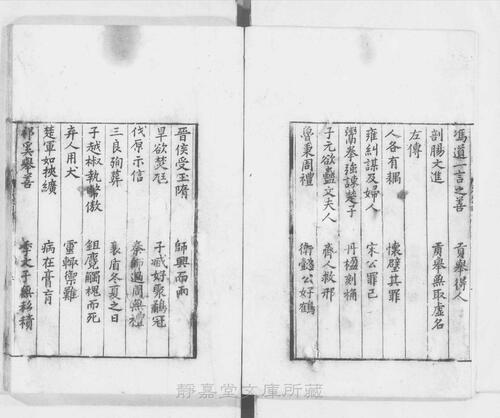 馮道一言之善 貢舉得人
剖腸大進 貢舉無取虛名
左傳
人各有耦 懷璧其罪
雍糾謀及婦人 宋公罪己
鬻拳強諫楚子 丹楹刻桷
子元欲蠱文夫人 齊人救邢
魯秉周禮 衛懿公好鶴
晉侯受玉隋 師興而雨
旱欲焚尫 子臧好聚鷸冠
伐原示信 秦師過周無禮
三良殉葬 冬夏之日
子越椒執幣傲 鉏麑觸槐而死
弃人用犬 靈輒禦難
楚軍如挾纊 病在膏肓
祁奚舉善 季文子無私積
靜嘉堂文庫所藏